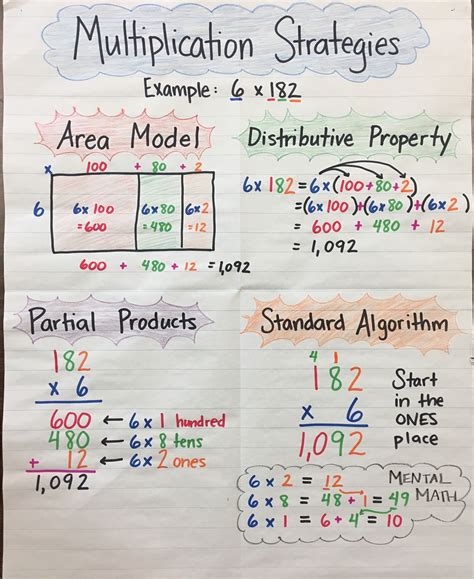 Multiplication Strategies
Example: 6 x 182
Area Model
x 100 + 80 + 2
6
6x100 6x80 6x2
=600 =480 =12
600 + 480 + 12 = 1,092
Distributive Property
6x182 = 6x(100+80+2)
=(6x100)+(6x80)+(6x2)
= 600 + 480 + 12
= 1,092
Partial Products
182
x 6
600 ← 6x1 hundred
480 ← 6x8 tens
+ 12 ← 6x2 ones
1,092
Standard Algorithm
4 1
182
x 6
1,092
Start
in the
ONES
place
6 x 2 = 12
6 x 8 = 48 + 1 = 49
6 x 1 = 6 + 4 = 10
MENTAL
MATH